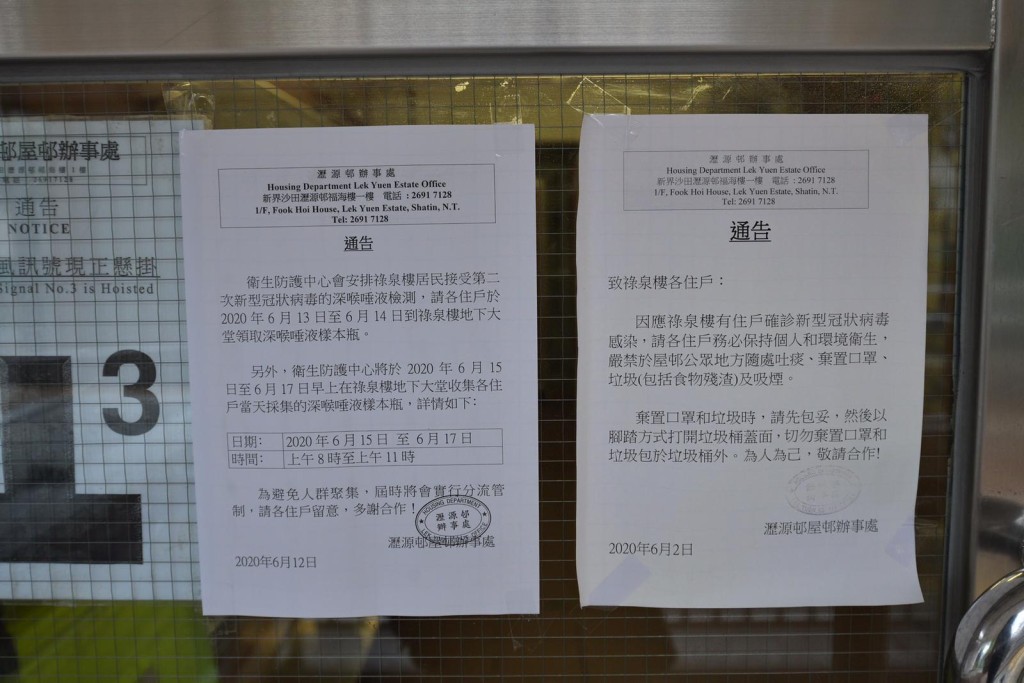 邨屋邨辦事處
通告
NOTICE
風訊號現正懸掛
Signal No.3 is Hoisted
3
瀝源邨辦事處
Housing Department Lek Yuen Estate Office
新界沙田瀝源邨福海樓一樓 電話 : 2691 7128
1/F, Fook Hoi House, Lek Yuen Estate, Shatin, N.T.
Tel: 2691 7128
通告
衞生防護中心會安排祿泉樓居民接受第二
次新型冠狀病毒的深喉唾液檢測，請各住戶於
2020 年 6 月 13 日至 6 月 14 日到祿泉樓地下大
堂領取深喉唾液樣本瓶。
另外，衞生防護中心將於 2020 年 6 月 15
日至 6 月 17 日早上在祿泉樓地下大堂收集各住
戶當天採集的深喉唾液樣本瓶，詳情如下:
日期: 2020 年 6 月 15 日 至 6 月 17 日
時間: 上午 8 時至上午 11 時
為避免人群聚集，屆時將會實行分流管
制，請各住戶留意，多謝合作！
HOUSING DEPARTMENT
瀝源邨
辦事處
瀝源邨屋邨辦事處
2020年6月12日
瀝源邨辦事處
Housing Department Lek Yuen Estate Office
新界沙田瀝源邨福海樓一樓 電話 : 2691 7128
1/F, Fook Hoi House, Lek Yuen Estate, Shatin, N.T.
Tel: 2691 7128
通告
致祿泉樓各住戶：
因應祿泉樓有住戶確診新型冠狀病毒
感染，請各住戶務必保持個人和環境衞生，
嚴禁於屋邨公眾地方隨處吐痰、棄置口罩、
垃圾(包括食物殘渣)及吸煙。
棄置口罩和垃圾時，請先包妥，然後以
腳踏方式打開垃圾桶蓋面，切勿棄置口罩和
垃圾包於垃圾桶外。為人為己，敬請合作!
瀝源邨屋邨辦事處
2020年6月2日